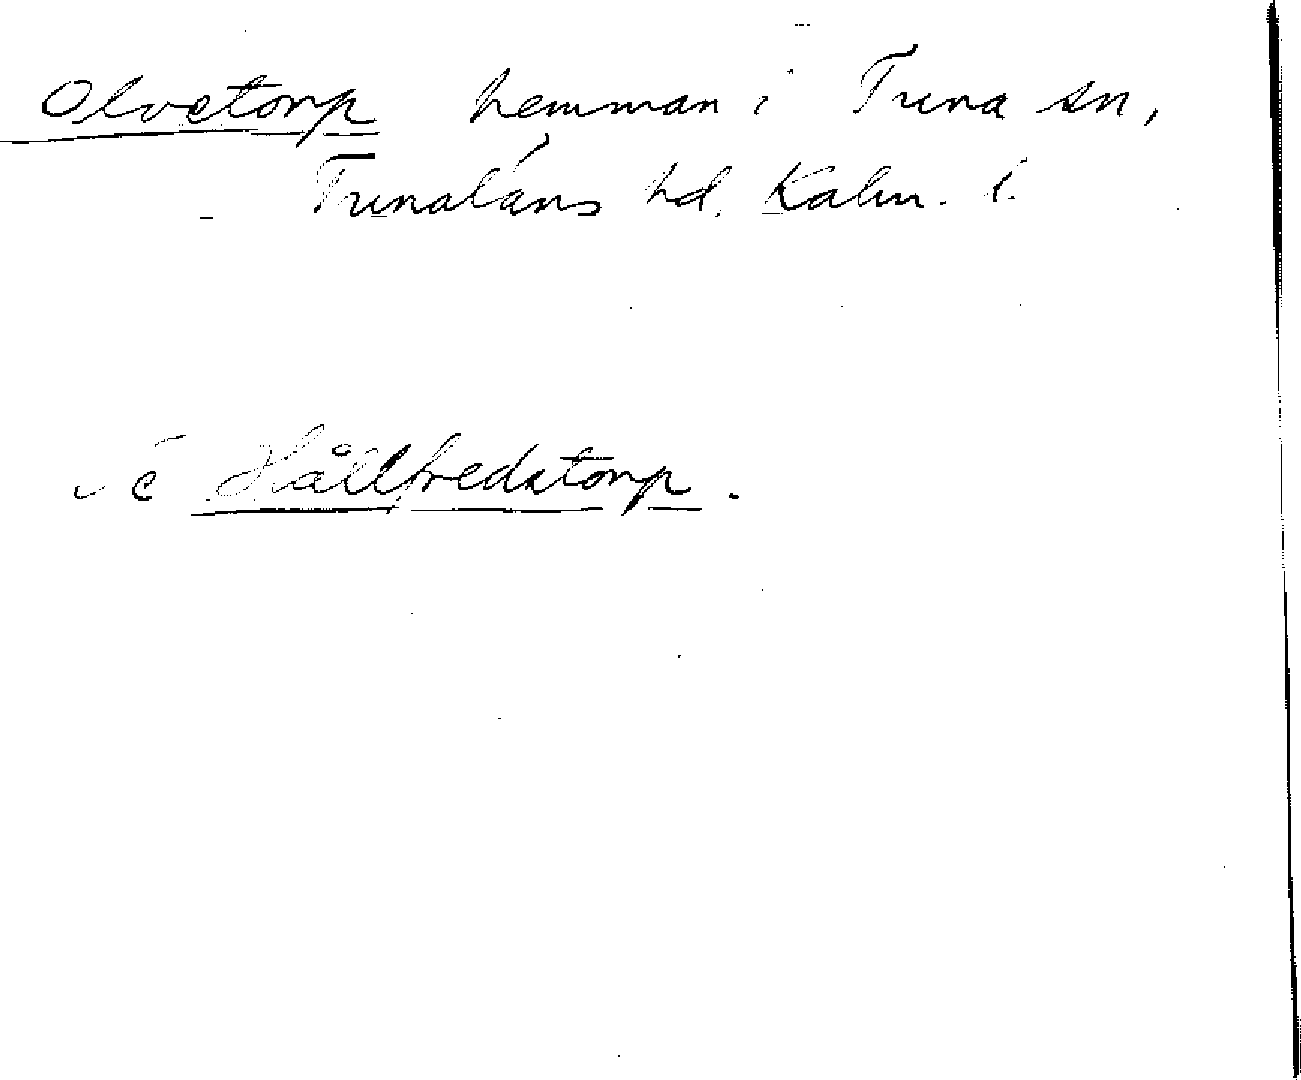 Olvetorp hemman i Tuna sn,
Tunaläns hd. Kalm. l.
Hållfredstorp.